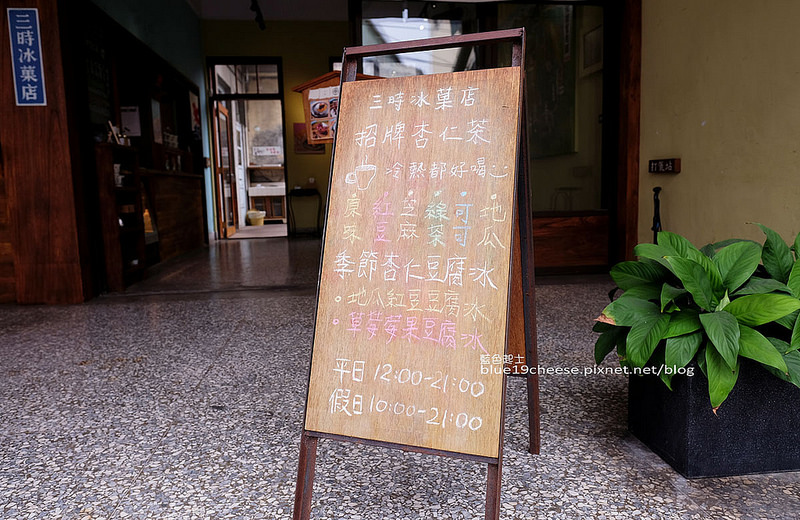 三時冰菓店
三時冰菓店
招牌杏仁茶
冷熱都好喝
原味 紅豆 芝麻 綠茶 可可 地瓜
季節杏仁豆腐冰
。地瓜紅豆豆腐冰
。草莓蘋果豆腐冰
平日 12:00-21:00
假日 10:00-21:00
藍色起士
blue19cheese.pixnet.net/blog